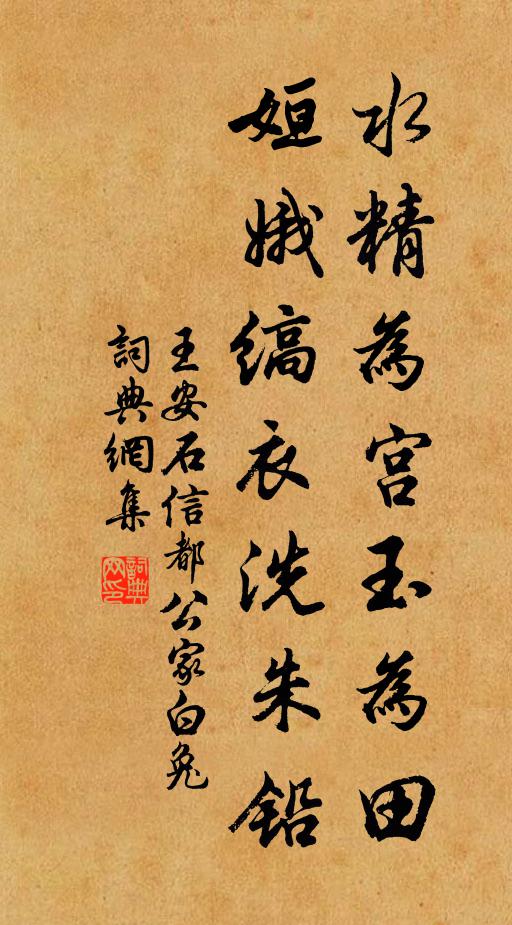 水精為宮玉為田
姮娥縞衣洗朱鉛
王安石信都公家白兔
詞典網集
詞典网印